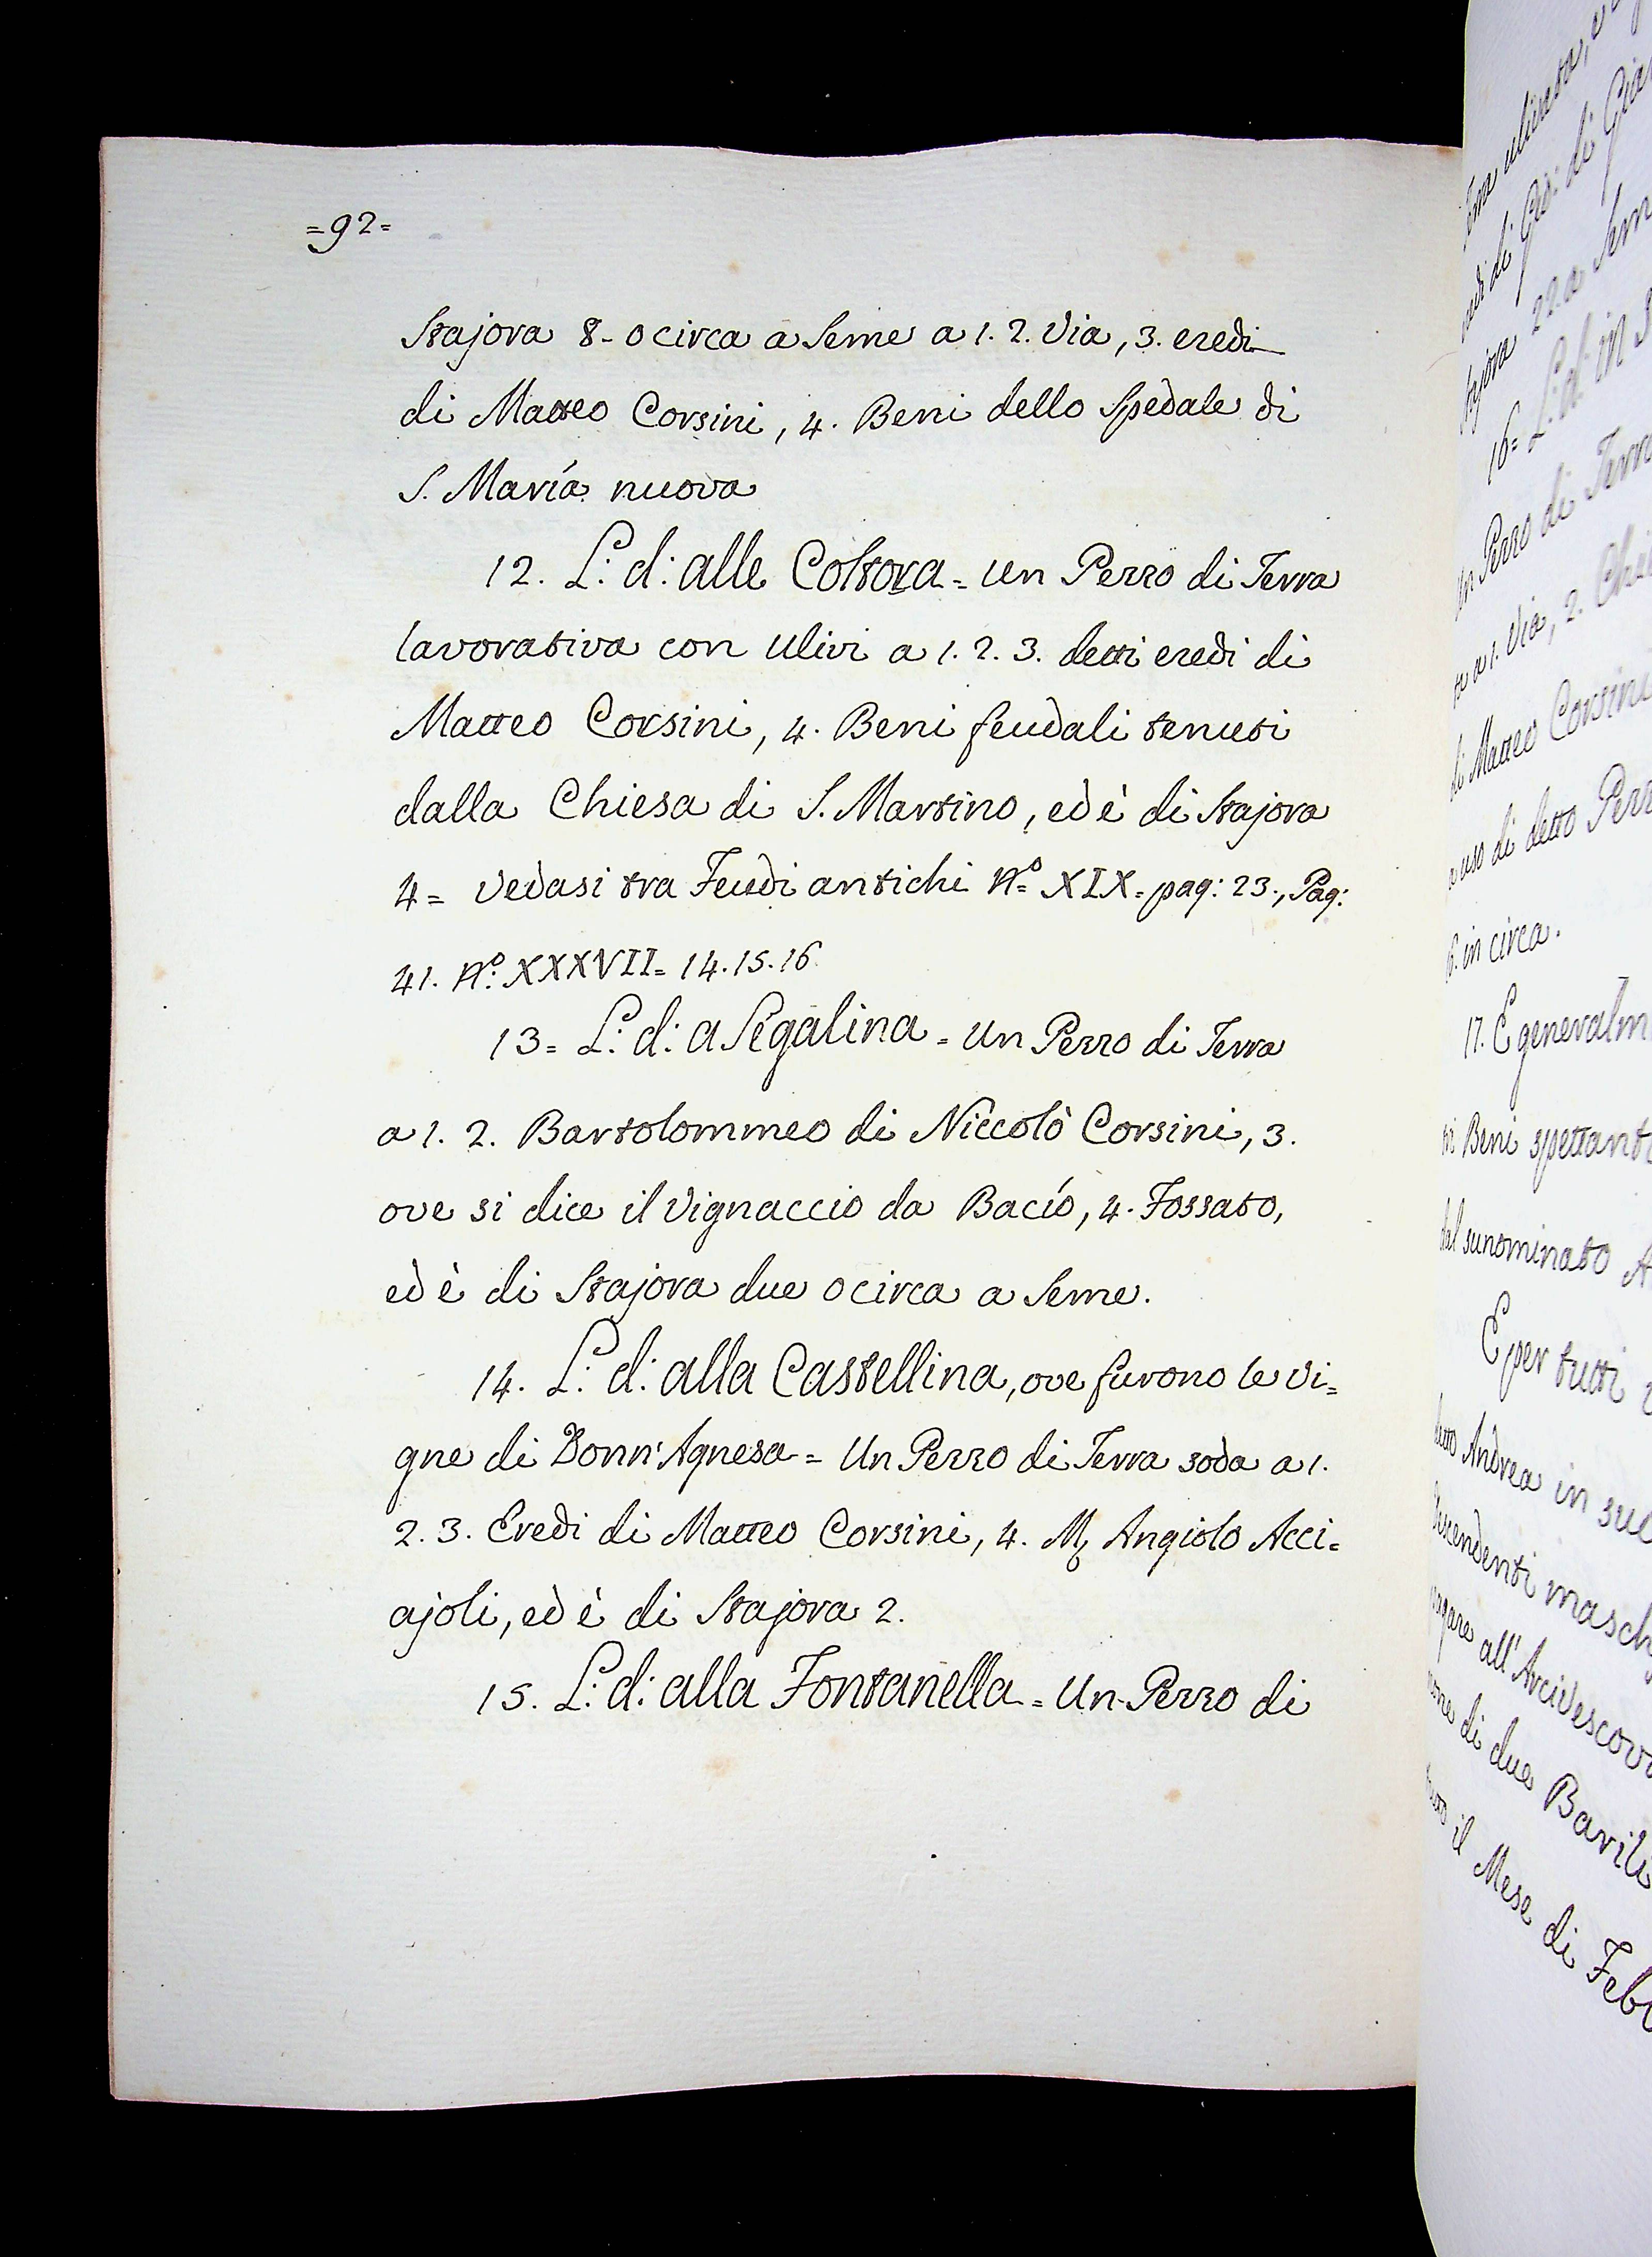 =92=
Stajora 8- o circa a Seme a 1. 2. Via, 3. eredi
di Matteo Corsini, 4. Beni dello Spedale di
S. María nuova
12. L: d: alle Coltora = un Pezzo di Terra
lavorativa con Ulivi a 1. 2. 3. detti eredi di
Matteo Corsini, 4. Beni feudali tenuti
dalla Chiesa di S. Martino, ed è di Stajora
4= Vedasi tra Feudi antichi N.º XIX= pag: 23., Pag:
41. N.º XXXVII= 14. 15. 16
13= L: d: a Segalina = un Pezzo di Terra
a 1. 2. Bartolommeo di Niccolò Corsini, 3.
ove si dice il Vignaccio da Bacío, 4. Fossato,
ed è di Stajora due o circa a Seme.
14. L: d: alla Castellina, ove furono le Vi=
gne di Donn' Agnesa = Un Pezzo di Terra soda a 1.
2. 3. Eredi di Matteo Corsini, 4. M, Angiolo Acci=
ajoli, ed è di Stajora 2.
15. L: d: alla Fontanella = Un Pezzo di
di Gio: di
Stajora 22 a
16= L: d: in
Un Pezzo di Terra
a 1. Via, 2.
di Matteo Corsini
uso di detto
6. in circa.
17. E
Beni
dal sunominato
E per tutti
detto Andrea in
all'
di due Barili
il Mese di